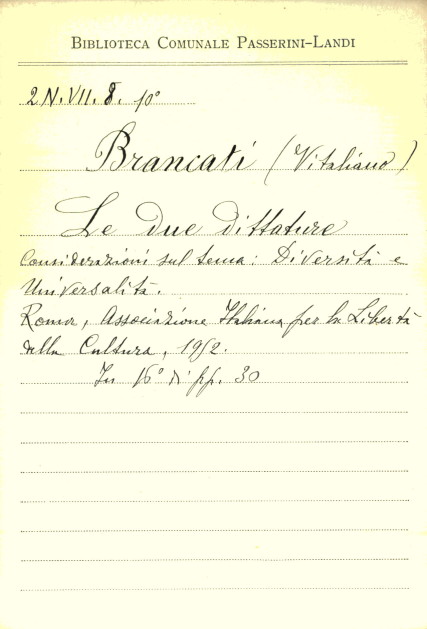 BIBLIOTECA COMUNALE PASSERINI-LANDI
2 N. VII. 8. 10°
Brancati (Vitaliano)
Le due dittature
Considerazioni sul tema: Diversità e
Universalità.
Roma, Associazione Italiana per la Libertà
della Cultura, 1952.
In 16° di pp. 30